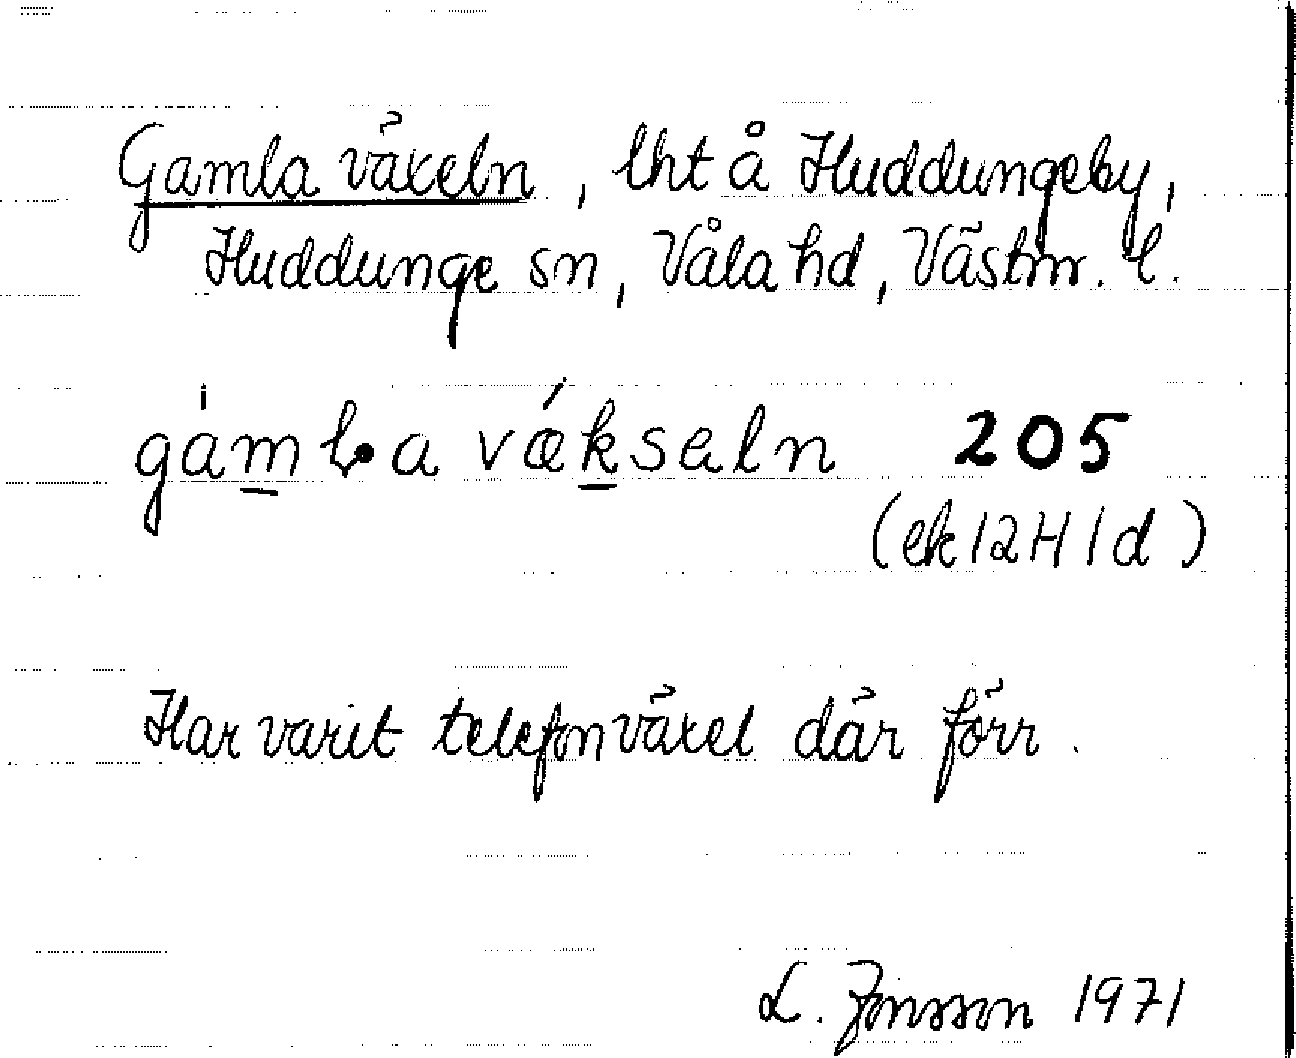 Gamla växeln, lht å Huddungeby,
Huddunge sn, Våla hd, Västm. l.
gám̲l̥a vǽk̲seln 205
(ek 12H 1d)
Har varit telefonväxel där förr.
L. Jonsson 1971